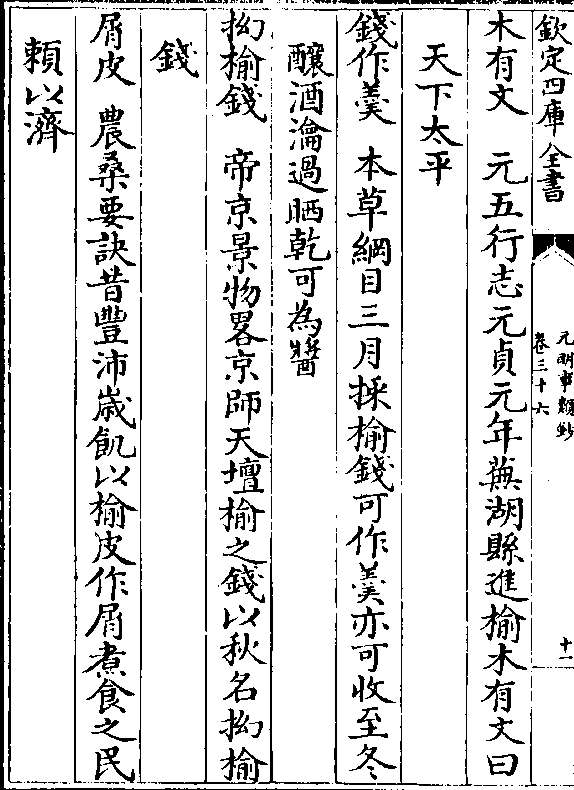 欽定四庫全書
元明事類鈔
卷三十六
十一
木有文　元五行志元貞元年蕪湖縣進榆木有文曰
天下太平
錢作羹　本草綱目三月採榆錢可作羹亦可收至冬
釀酒瀹過晒乾可為醬
拗榆錢　帝京景物畧京師天壇榆之錢以秋名拗榆
錢
屑皮　農桑要訣昔豐沛歲飢以榆皮作屑煮食之民
頼以濟